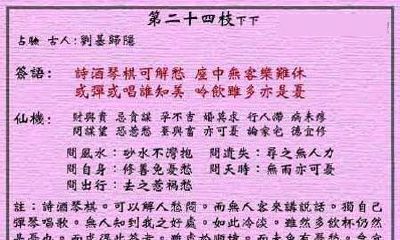 第二十四枝下下
占驗 古人:劉基歸隱
簽語: 詩酒琴棋可解愁 座中無客樂難休
或彈或唱誰知美 吟飲雖多亦是憂
仙機: 財與貴 忌貪謀 孕不吉 婚莫求 行人滯 病未瘳
問謀望 恐惹愁 蠶與畜 亦可憂 論家宅 德宜修
問風水:砂水不灣抱 問遺失:尋之無人力
問自身:修善免憂愁 問天時:無雨亦可憂
問出行:去之惹禍愁
註:詩酒琴棋。可以解人愁悶。而無人客來講說話。獨自己
彈琴唱歌。無人知到我之好處。如此冷淡。雖然多飲杯仍然